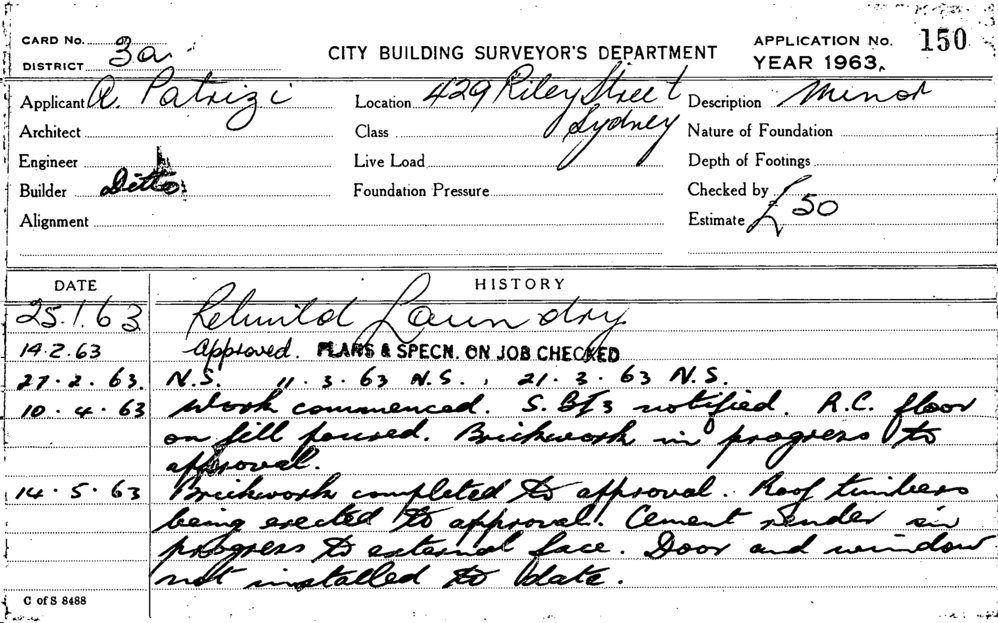 CARD No. 3a CITY BUILDING SURVEYOR'S DEPARTMENT APPLICATION No. 150
DISTRICT YEAR 1963.
Applicant A. Patrizi Location 429 Riley Street Description Minor
Architect Class Sydney Nature of Foundation
Engineer Live Load Depth of Footings
Builder Ditto Foundation Pressure Checked by
Alignment Estimate £50
DATE HISTORY
25.1.63 Rebuild Laundry
14.2.63 Approved. PLANS & SPECN. ON JOB CHECKED
27.2.63. N.S. 11.3.63 N.S., 21.3.63 N.S.
10.4.63 Work commenced. notified. R.C. floor
on fill poured. Brickwork in progress to
approval.
14.5.63 Brickwork completed to approval. Roof timbers
being erected to approval. Cement render in
progress to external face. Door and window
not installed to date.
C of S 8488